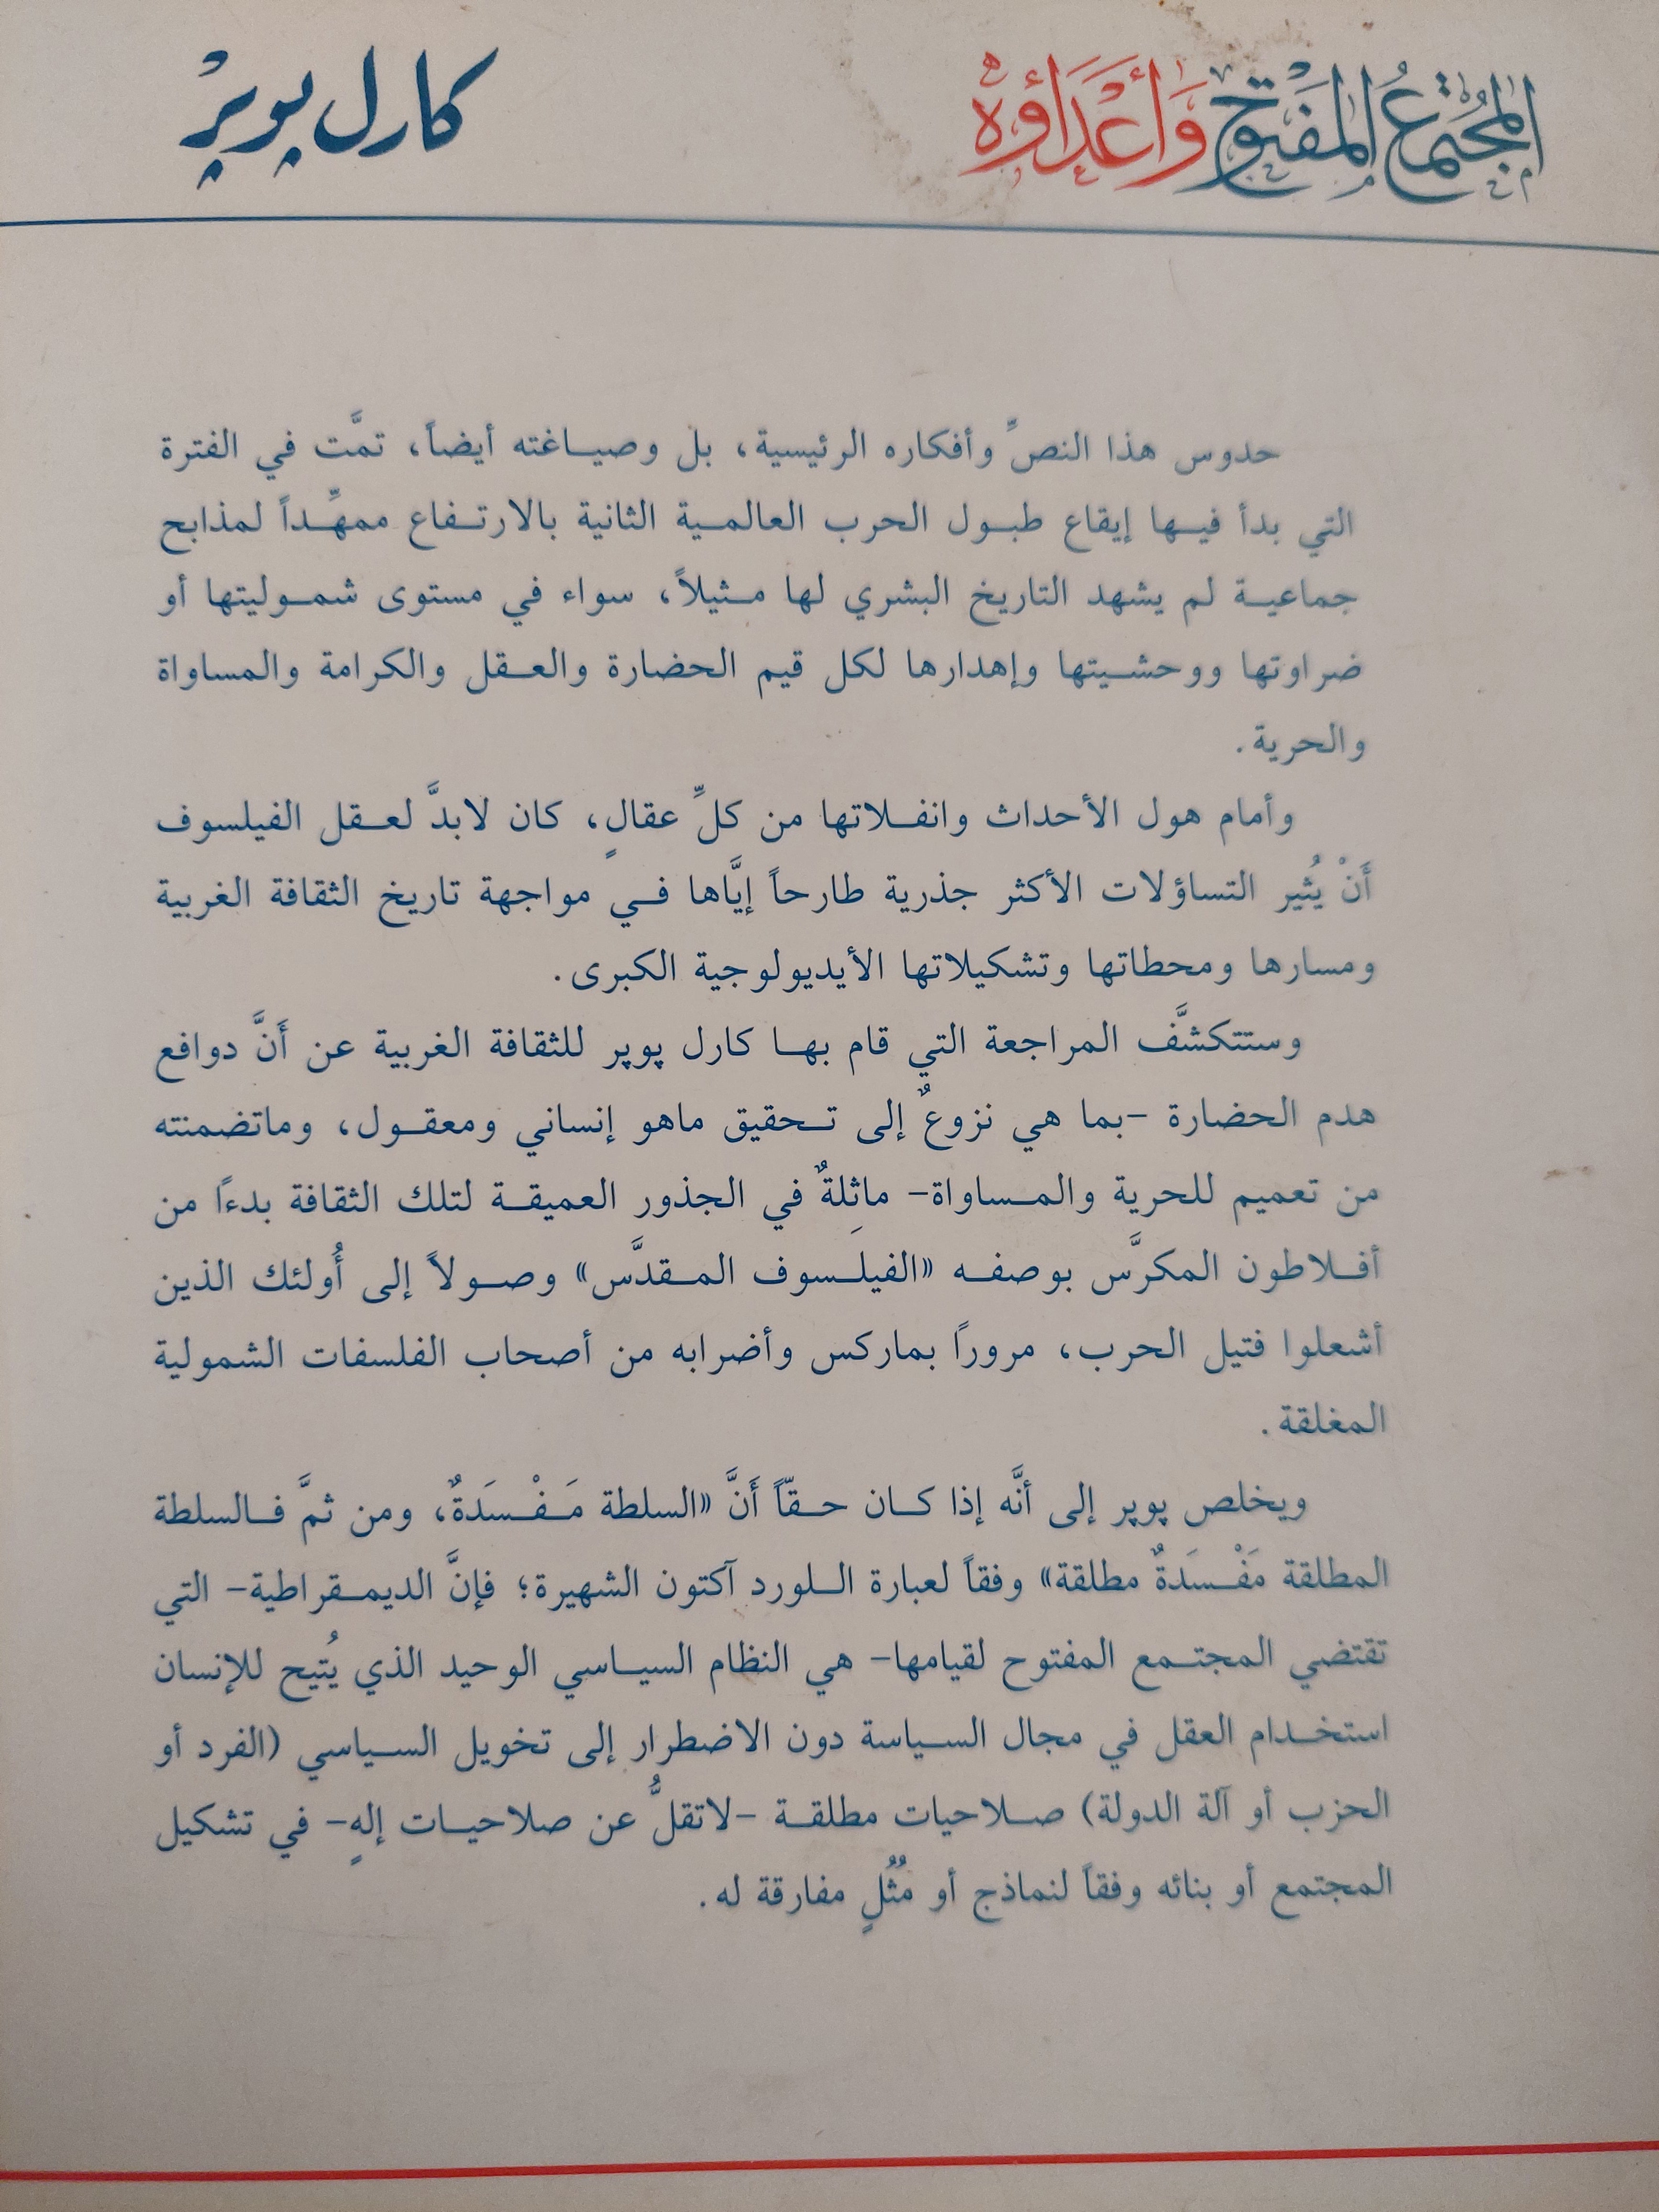 المُجتمعُ المفتوح وَأعدَاؤه
كارل پوپر
حدوس هذا النصِّ وأفكاره الرئيسية، بل وصياغته أيضاً، تمَّت في الفترة
التي بدأ فيها إيقاع طبول الحرب العالمية الثانية بالارتفاع ممهِّداً لمذابح
جماعية لم يشهد التاريخ البشري لها مثيلاً، سواء في مستوى شموليتها أو
ضراوتها ووحشيتها وإهدارها لكل قيم الحضارة والعقل والكرامة والمساواة
والحرية.
وأمام هول الأحداث وانفلاتها من كلِّ عقالٍ، كان لابدَّ لعقل الفيلسوف
أَنْ يُثير التساؤلات الأكثر جذرية طارحاً إيَّاها في مواجهة تاريخ الثقافة الغربية
ومسارها ومحطاتها وتشكيلاتها الأيديولوجية الكبرى.
وستتكشَّف المراجعة التي قام بها كارل پوپر للثقافة الغربية عن أَنَّ دوافع
هدم الحضارة -بما هي نزوعٌ إلى تحقيق ماهو إنساني ومعقول، وماتضمنته
من تعميم للحرية والمساواة- ماثِلةٌ في الجذور العميقة لتلك الثقافة بدءاً من
أفلاطون المكرَّس بوصفه «الفيلسوف المقدَّس» وصولاً إلى أُولئك الذين
أشعلوا فتيل الحرب، مروراً بماركس وأضرابه من أصحاب الفلسفات الشمولية
المغلقة.
ويخلص پوپر إلى أنَّه إذا كان حقّاً أَنَّ «السلطة مَفْسَدَةٌ، ومن ثمَّ فالسلطة
المطلقة مَفْسَدةٌ مطلقة» وفقاً لعبارة اللورد آكتون الشهيرة؛ فإنَّ الديمقراطية- التي
تقتضي المجتمع المفتوح لقيامها- هي النظام السياسي الوحيد الذي يُتيح للإنسان
استخدام العقل في مجال السياسة دون الاضطرار إلى تخويل السياسي (الفرد أو
الحزب أو آلة الدولة) صلاحيات مطلقة -لاتقلُّ عن صلاحيات إلهٍ- في تشكيل
المجتمع أو بنائه وفقاً لنماذج أو مُثُلٍ مفارقة له.